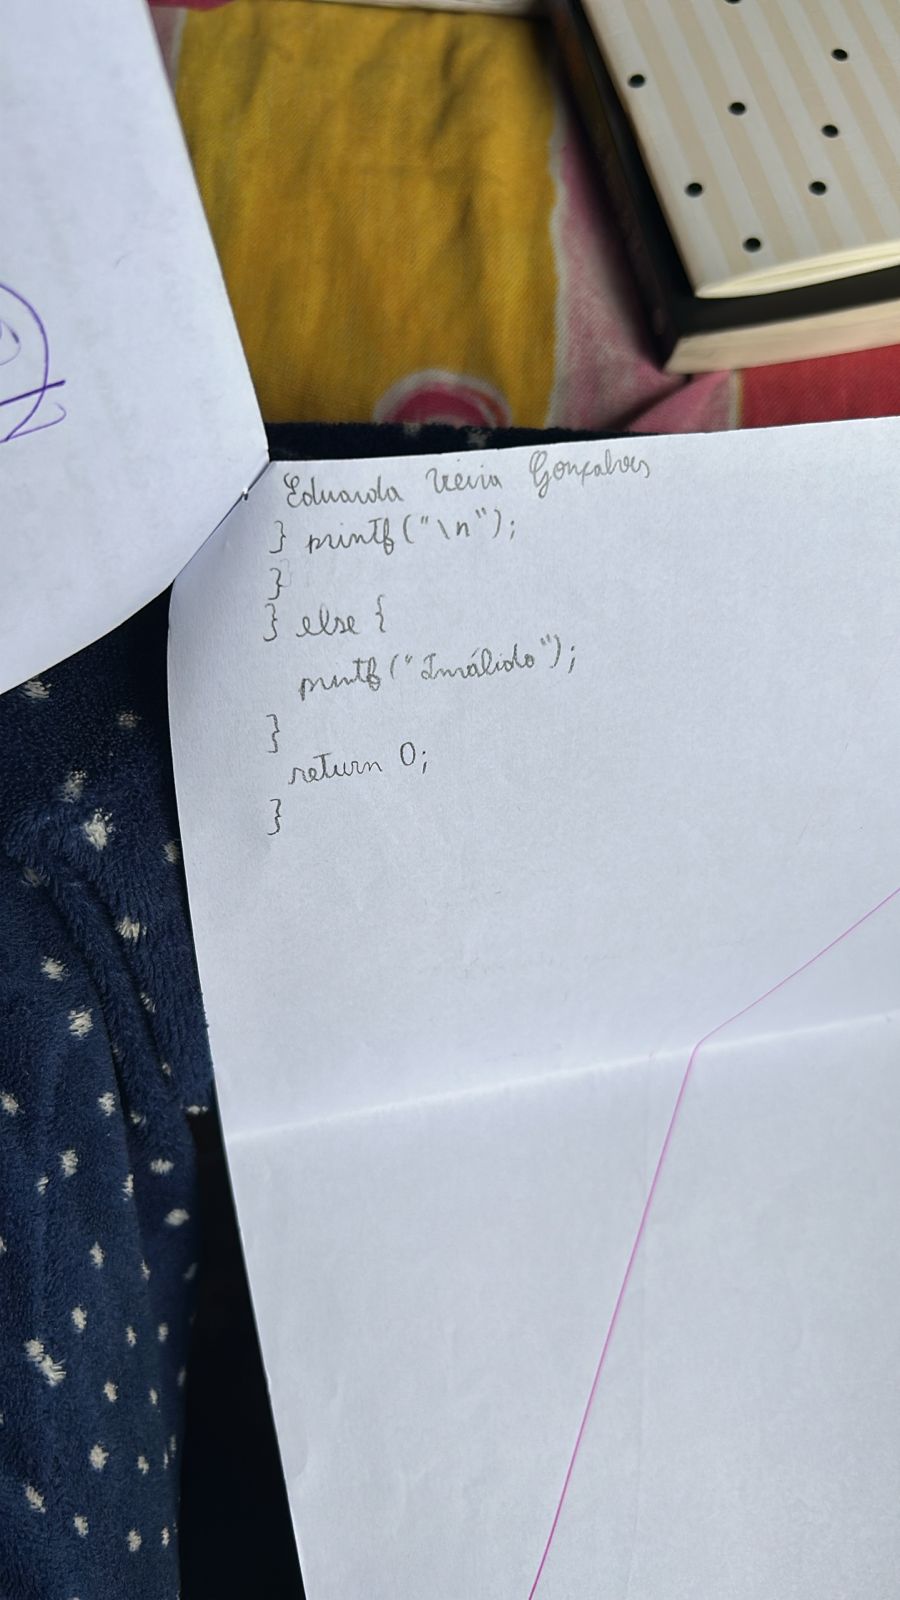 Eduarda Vieira Gonçalves
} printf("\n");
}
} else {
printf("Inválido");
}
return 0;
}